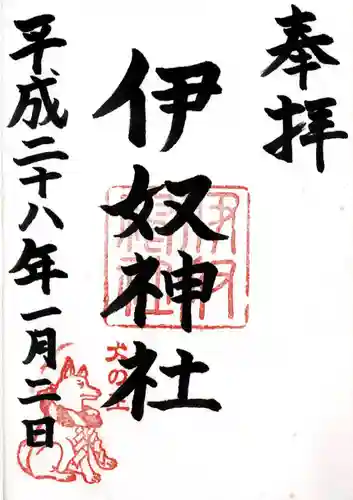 奉拝
伊奴神社
伊奴神社
犬の王
平成二十八年一月二日